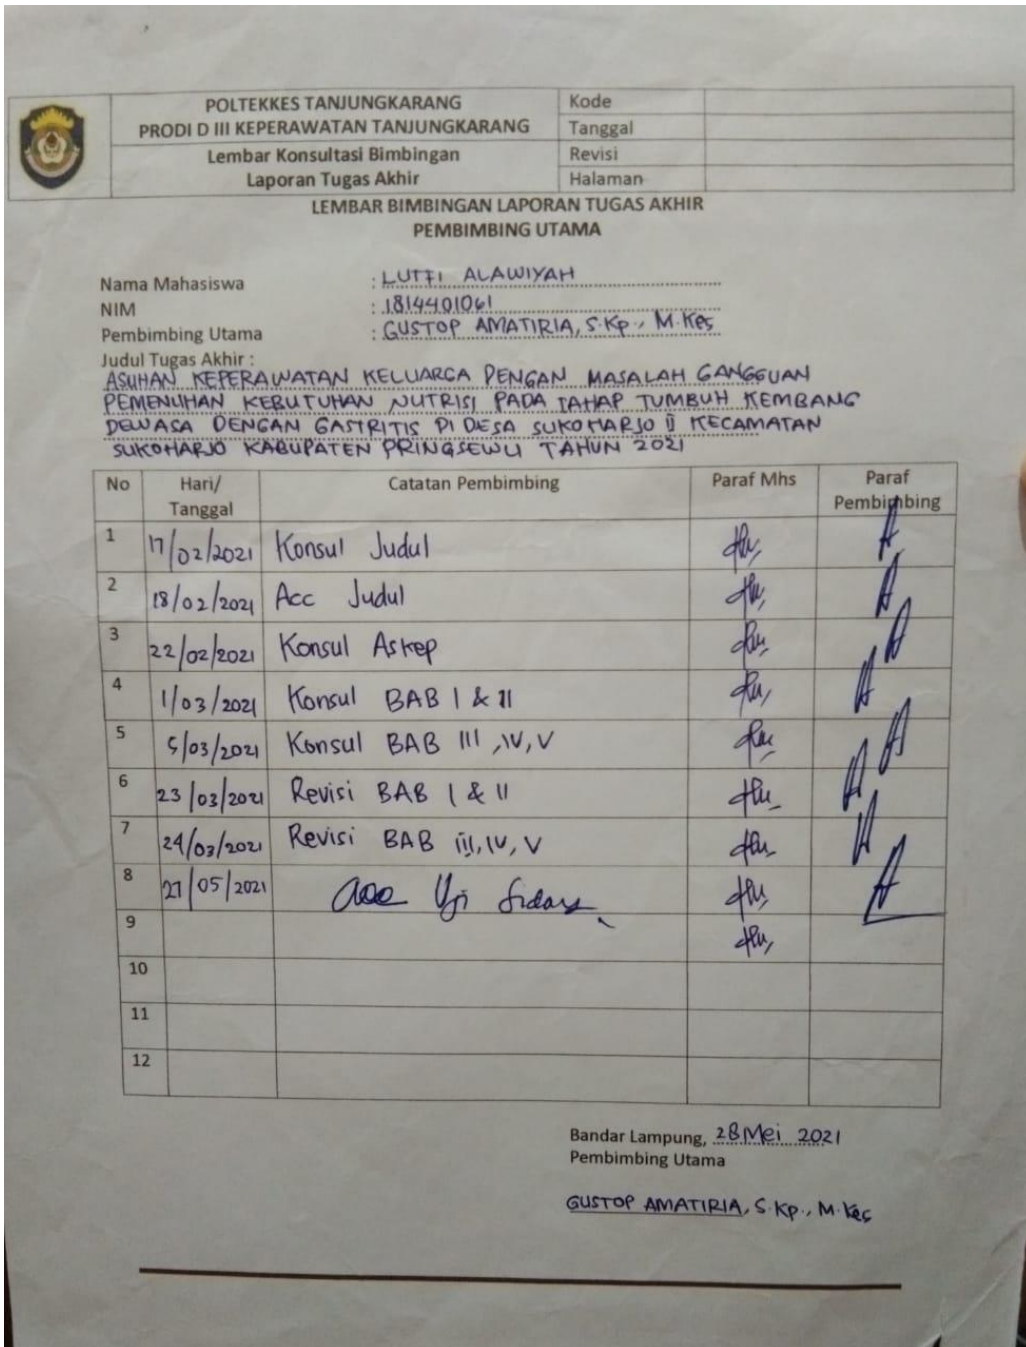 POLTEKKES TANJUNGKARANG
PRODI D III KEPERAWATAN TANJUNGKARANG
Lembar Konsultasi Bimbingan
Laporan Tugas Akhir
Kode
Tanggal
Revisi
Halaman
LEMBAR BIMBINGAN LAPORAN TUGAS AKHIR
PEMBIMBING UTAMA
Nama Mahasiswa : LUTFI ALAWIYAH
NIM : 1814401061
Pembimbing Utama : GUSTOP AMATIRIA, S.Kp., M.Kes
Judul Tugas Akhir :
ASUHAN KEPERAWATAN KELUARGA DENGAN MASALAH GANGGUAN
PEMENUHAN KEBUTUHAN NUTRISI PADA TAHAP TUMBUH KEMBANG
DEWASA DENGAN GASTRITIS DI DESA SUKOHARJO II KECAMATAN
SUKOHARJO KABUPATEN PRINGSEWU TAHUN 2021
No Hari/ Tanggal Catatan Pembimbing Paraf Mhs Paraf Pembimbing
1 17/02/2021 Konsul Judul
2 18/02/2021 Acc Judul
3 22/02/2021 Konsul Askep
4 1/03/2021 Konsul BAB I & II
5 5/03/2021 Konsul BAB III, IV, V
6 23/03/2021 Revisi BAB I & II
7 24/03/2021 Revisi BAB III, IV, V
8 27/05/2021 acc Uji Sidang
9
10
11
12
Bandar Lampung, 28 Mei 2021
Pembimbing Utama
GUSTOP AMATIRIA, S.Kp., M.Kes